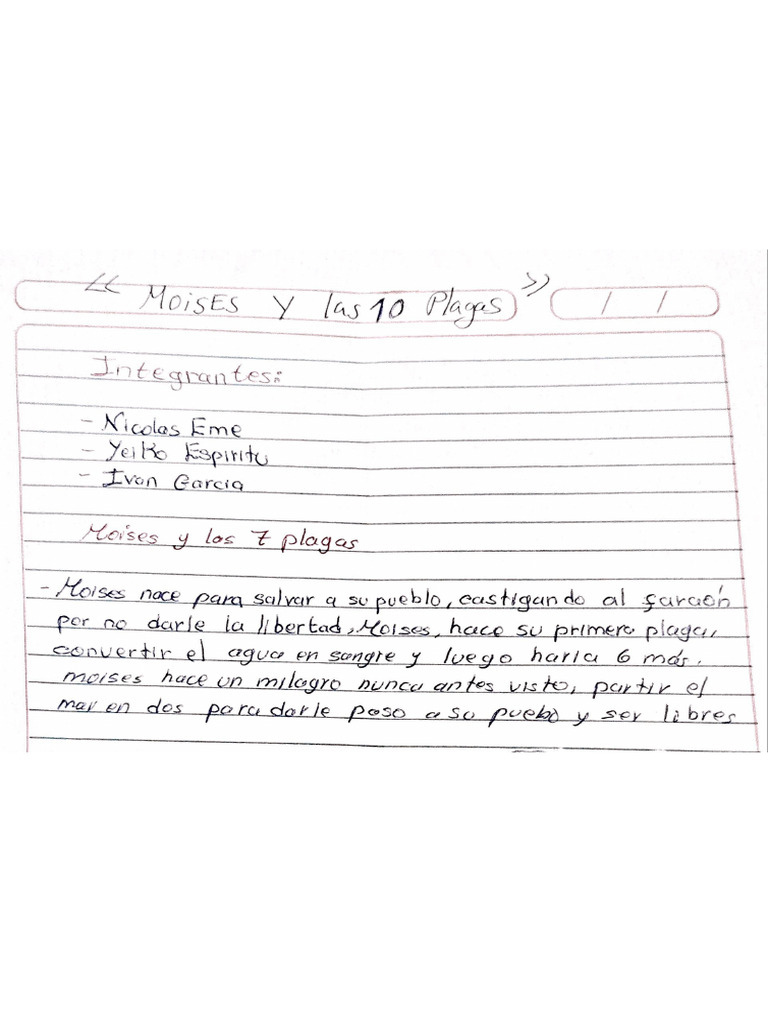 “ MOISES Y las 10 Plagas ”
/ /
Integrantes:
- Nicolas Eme
- Yeiko Espiritu
- Ivan Garcia
Moises y las 7 plagas
- Moises nace para salvar a su pueblo, castigando al faraón
por no darle la libertad, Moises, hace su primera plaga,
convertir el agua en sangre y luego haria 6 más.
moises hace un milagro nunca antes visto, partir el
mar en dos para darle paso a su puebo y ser libres